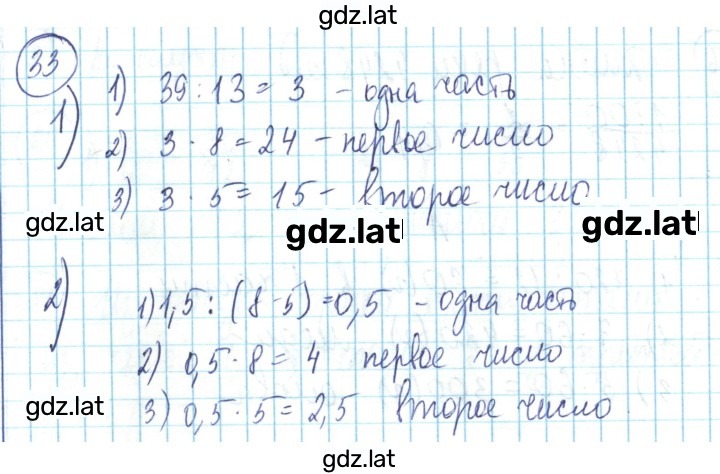 gdz.lat
33
1) 1) 39 : 13 = 3 - одна часть
2) 3 · 8 = 24 - первое число
3) 3 · 5 = 15 - второе число
gdz.lat gdz.lat gdz.lat
2) 1) 1,5 : (8 - 5) = 0,5 - одна часть
2) 0,5 · 8 = 4 первое число
gdz.lat
3) 0,5 · 5 = 2,5 второе число.
gdz.lat